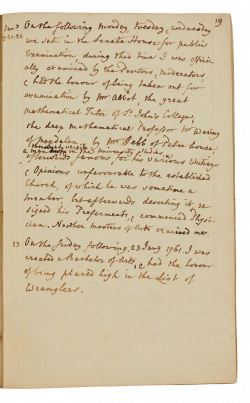 19
Jan.y On the following Monday, Tuesday & Wednesday
19.20.21 we set in the Senate House for public
Examination, during this time I was offici-
ally examined by the Proctors, moderators
& had the honour of being taken out for
examination by Mr Abbot, the great
mathematical Tutor of St John's College,
the deep mathematical Professor Mr Waring
of Magdalen, & by Mr Jebb of Peter house,
a man thought in the University
afterwards famous for his various Writings
& Opinions unfavourable to the established
Church, of which he was sometime a
member, but afterwards deserting it, re-
signed his Preferment, & commenced Physi-
cian. No other masters of Arts examined me.
23 On the friday following, 23 Jany 1761. I was
created a Bachelor of Arts, & had the honour
of being placed high in the List of
Wranglers.